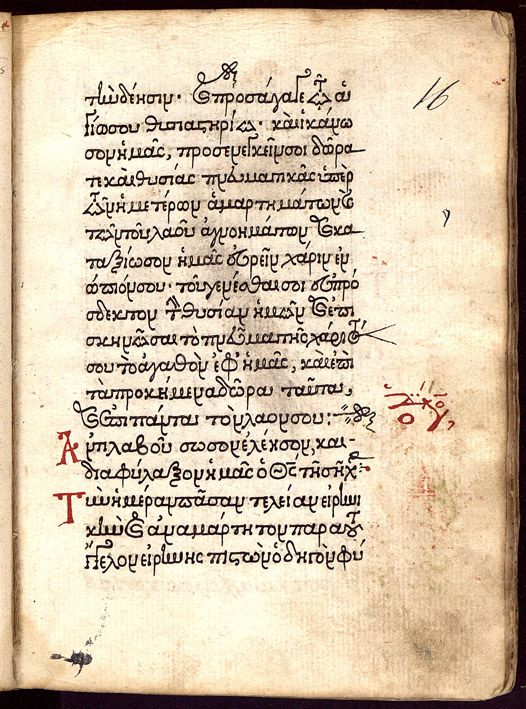 τὴν δέησιν· καὶ προσάγαγε τῷ ἁ
γίῳ σου θυσιαστηρίῳ· καὶ ἱκάνω
σον ἡμᾶς, προσενεγκεῖν σοι δῶρα
τε καὶ θυσίας πνευματικὰς ὑπὲρ
τῶν ἡμετέρων ἁμαρτημάτων καὶ
τῶν τοῦ λαοῦ ἀγνοημάτων καὶ κα
ταξίωσον ἡμᾶς εὑρεῖν χάριν ἐν
ώπιόν σου· τοῦ γενέσθαι σοι εὐπρό
σδεκτον τὴν θυσίαν ἡμῶν καὶ ἐπι
σκηνῶσαι τὸ πνεῦμα τῆς χάριτός
σου τὸ ἀγαθὸν ἐφ' ἡμᾶς, καὶ ἐπὶ
τὰ προκήμενα δῶρα ταῦτα,
καὶ ἐπὶ πάντα τὸν λαόν σου:
Ἀντιλαβοῦ σῶσον ἐλέησον, καὶ
διαφύλαξον ἡμᾶς ὁ Θς τῇ σῇ χ
Τὴν ἡμέραν πᾶσαν τελείαν εἰρηνι
κὴν καὶ ἀναμάρτητον παρὰ τοῦ
Ἄγγελον εἰρήνης πιστὸν ὁδηγὸν φύ
16